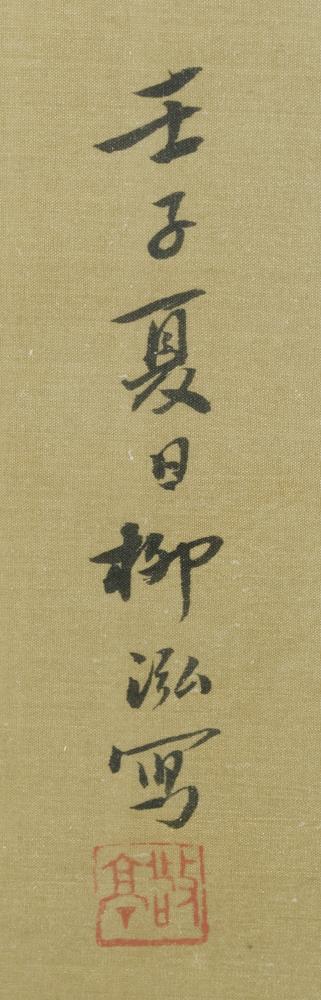 壬子夏日柳泓写